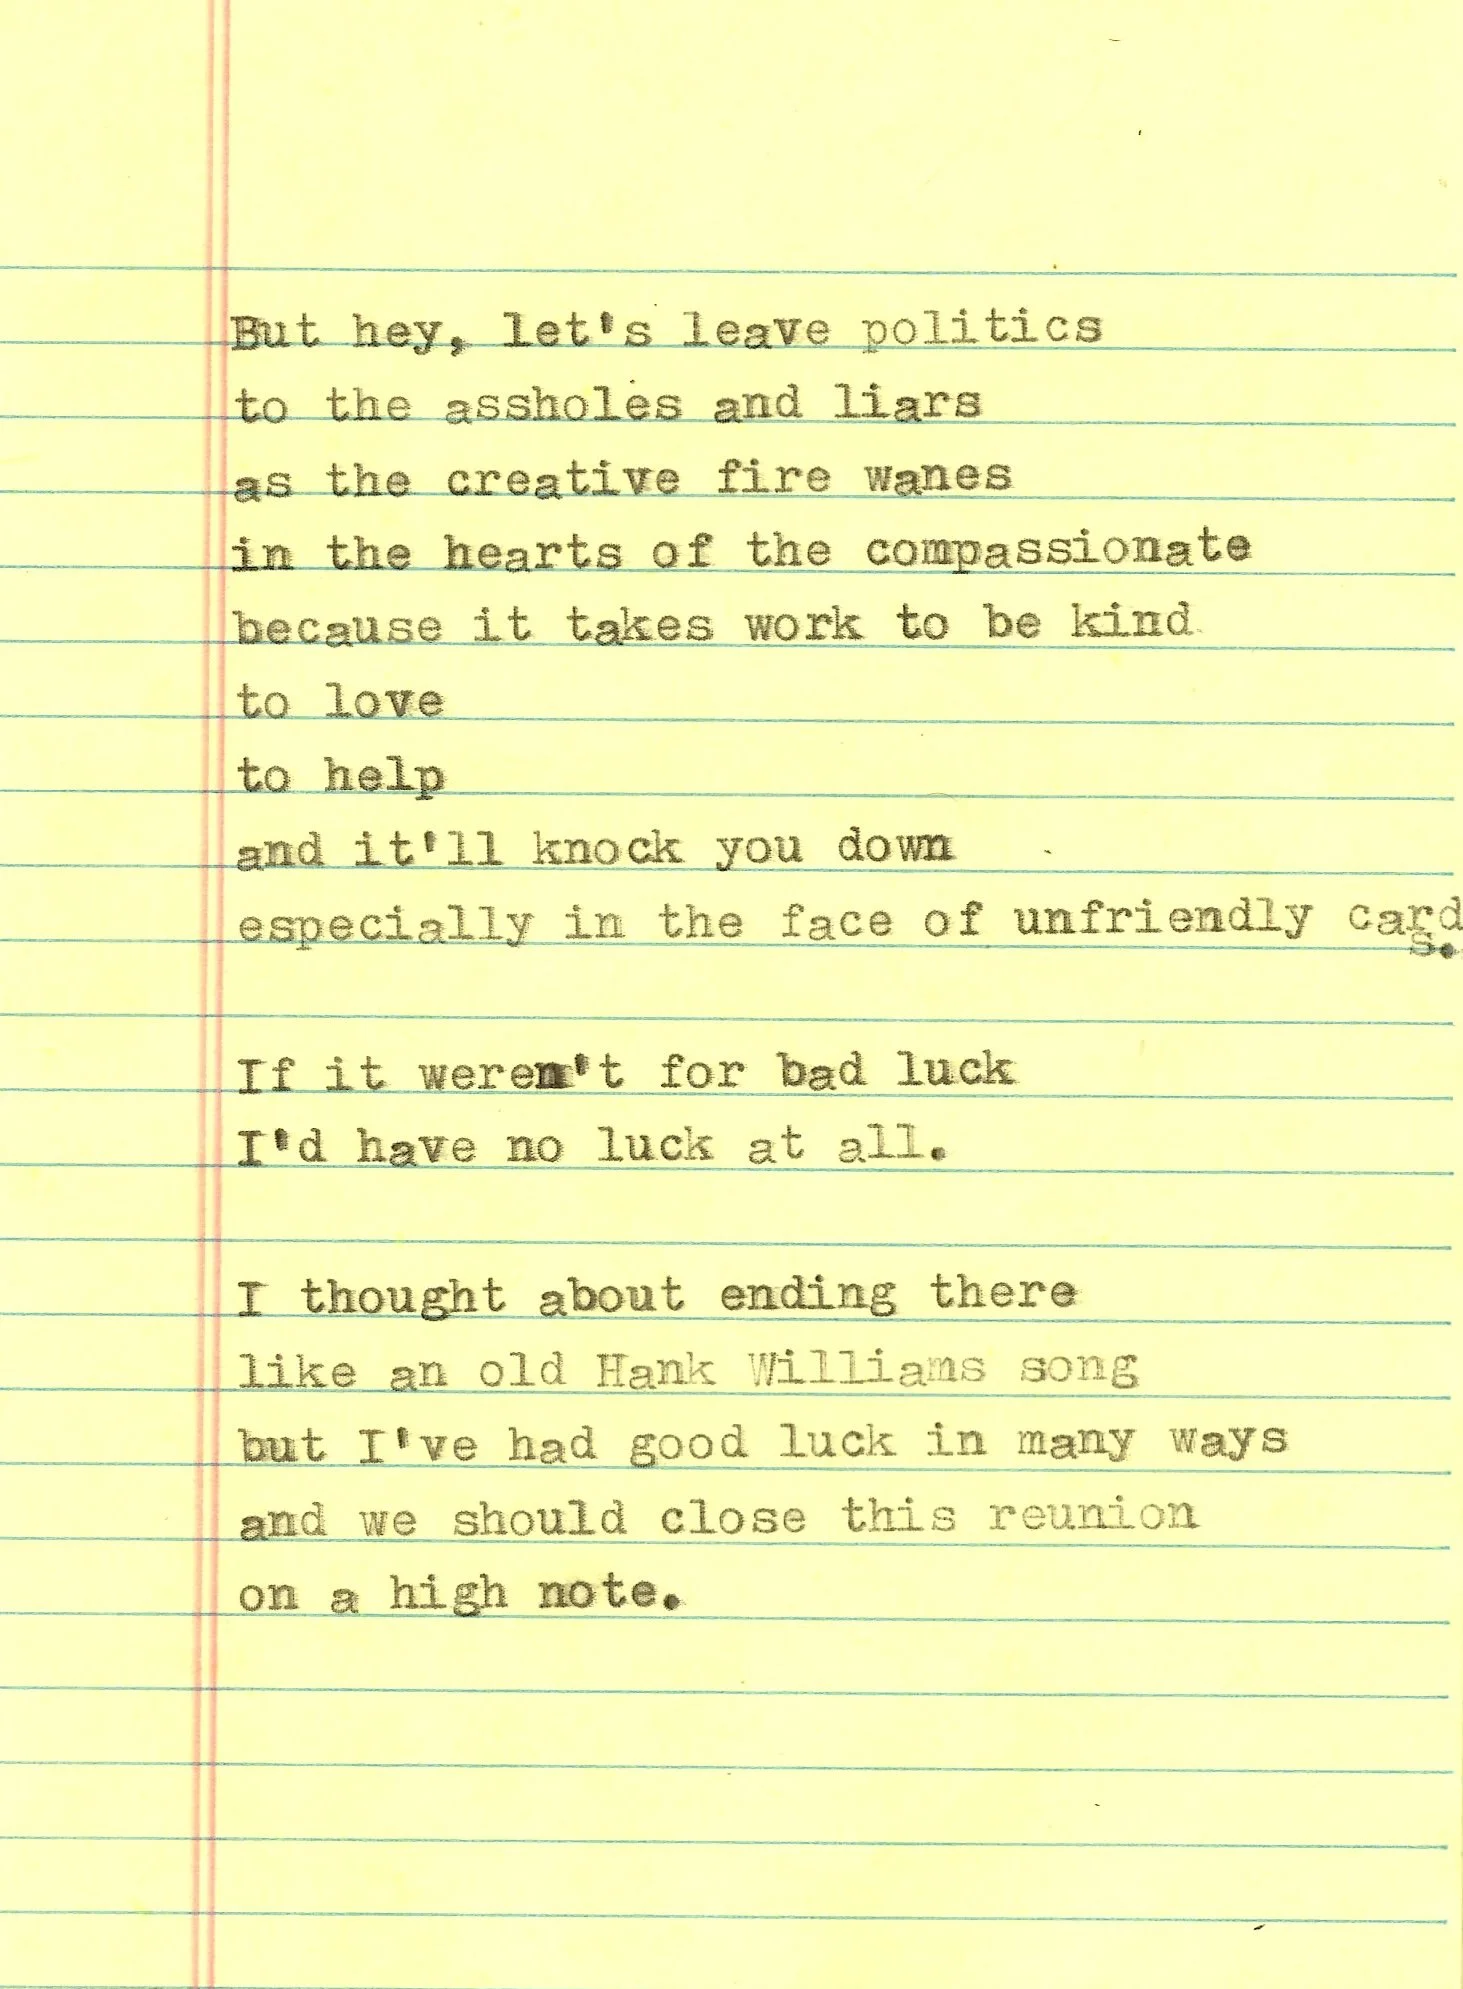 But hey, let's leave politics
to the assholes and liars
as the creative fire wanes
in the hearts of the compassionate
because it takes work to be kind
to love
to help
and it'll knock you down
especially in the face of unfriendly card
s.
If it weren't for bad luck
I'd have no luck at all.
I thought about ending there
like an old Hank Williams song
but I've had good luck in many ways
and we should close this reunion
on a high note.